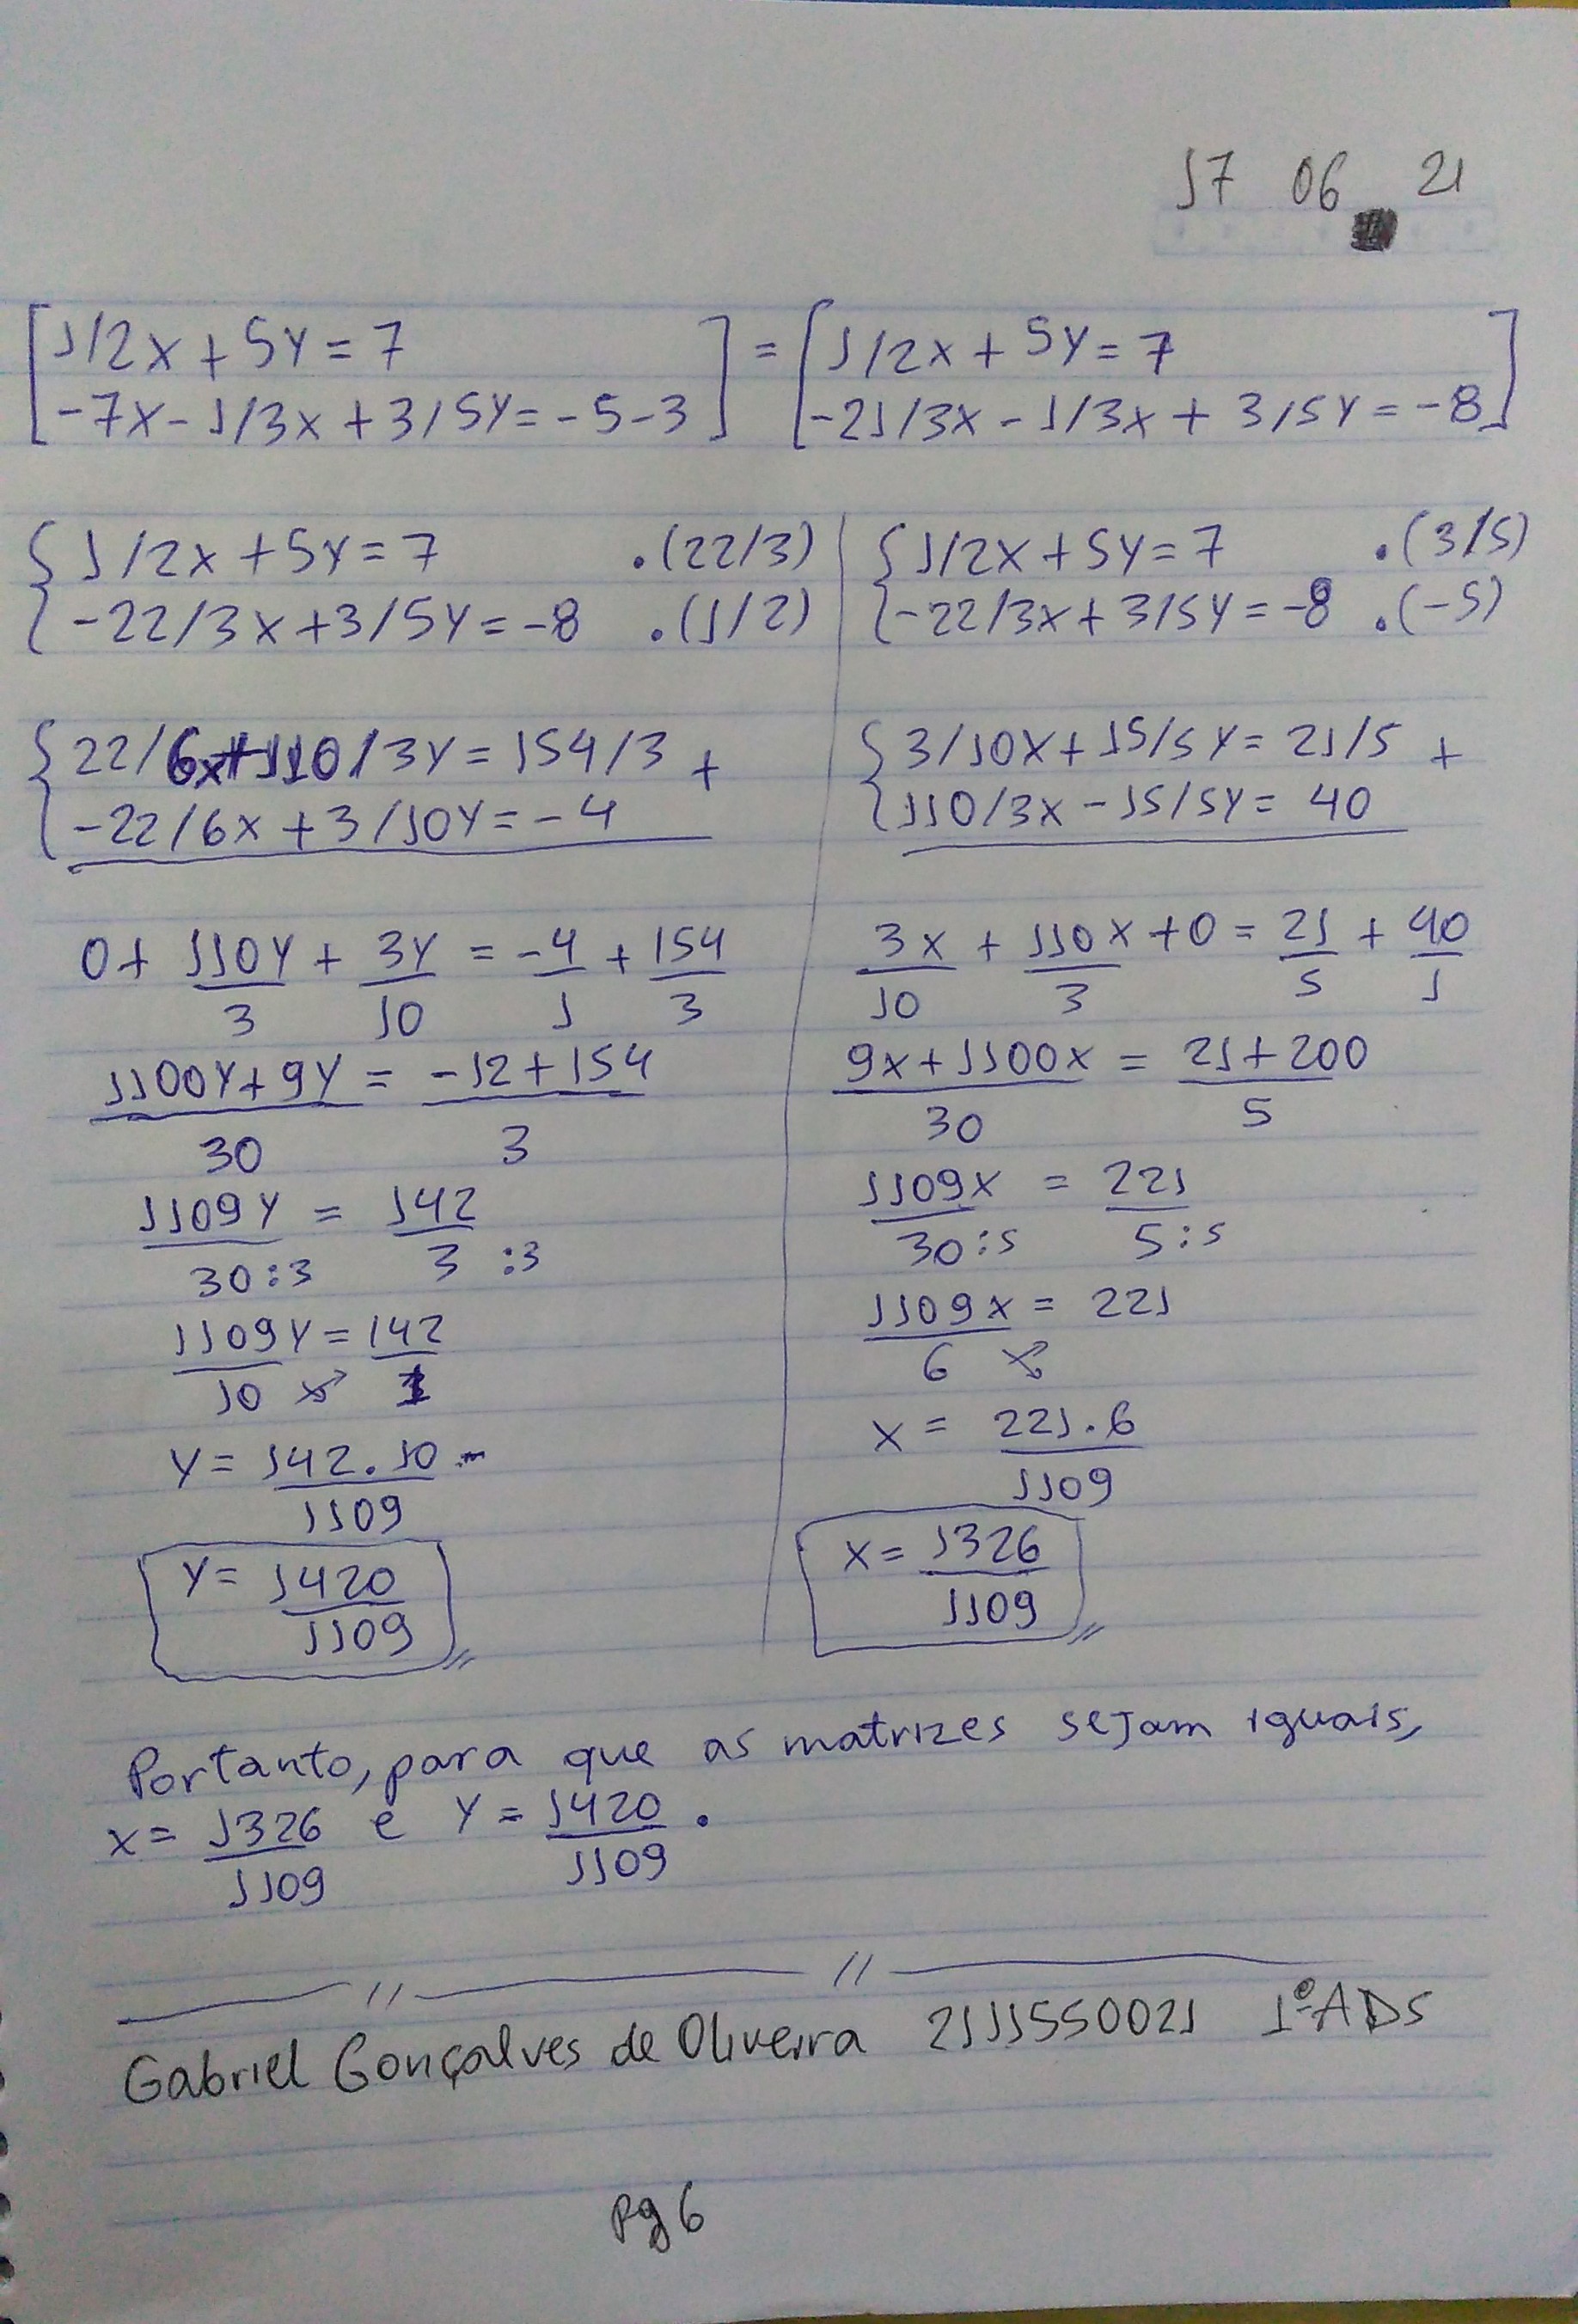 17 06 21
[1/2x + 5y = 7 ] = [1/2x + 5y = 7 ]
[-7x - 1/3x + 3/5y = -5-3] [-21/3x - 1/3x + 3/5y = -8]
{1/2x + 5y = 7 .(22/3)
{-22/3x + 3/5y = -8 .(1/2)
{22/6x + 110/3y = 154/3 +
{-22/6x + 3/10y = -4
0 + 110y/3 + 3y/10 = -4/1 + 154/3
1100y + 9y/30 = -12 + 154/3
1109y/30:3 = 142/3:3
1109y/10 = 142/1
y = 142.10/1109
y = 1420/1109
{1/2x + 5y = 7 .(3/5)
{-22/3x + 3/5y = -8 .(-5)
{3/10x + 15/5y = 21/5 +
{110/3x - 15/5y = 40
3x/10 + 110x/3 + 0 = 21/5 + 40/1
9x + 1100x/30 = 21 + 200/5
1109x/30:5 = 221/5:5
1109x/6 = 221
x = 221.6/1109
x = 1326/1109
Portanto, para que as matrizes sejam iguais,
x = 1326/1109 e y = 1420/1109 .
Gabriel Gonçalves de Oliveira 2111550021 1º ADS
Pg 6